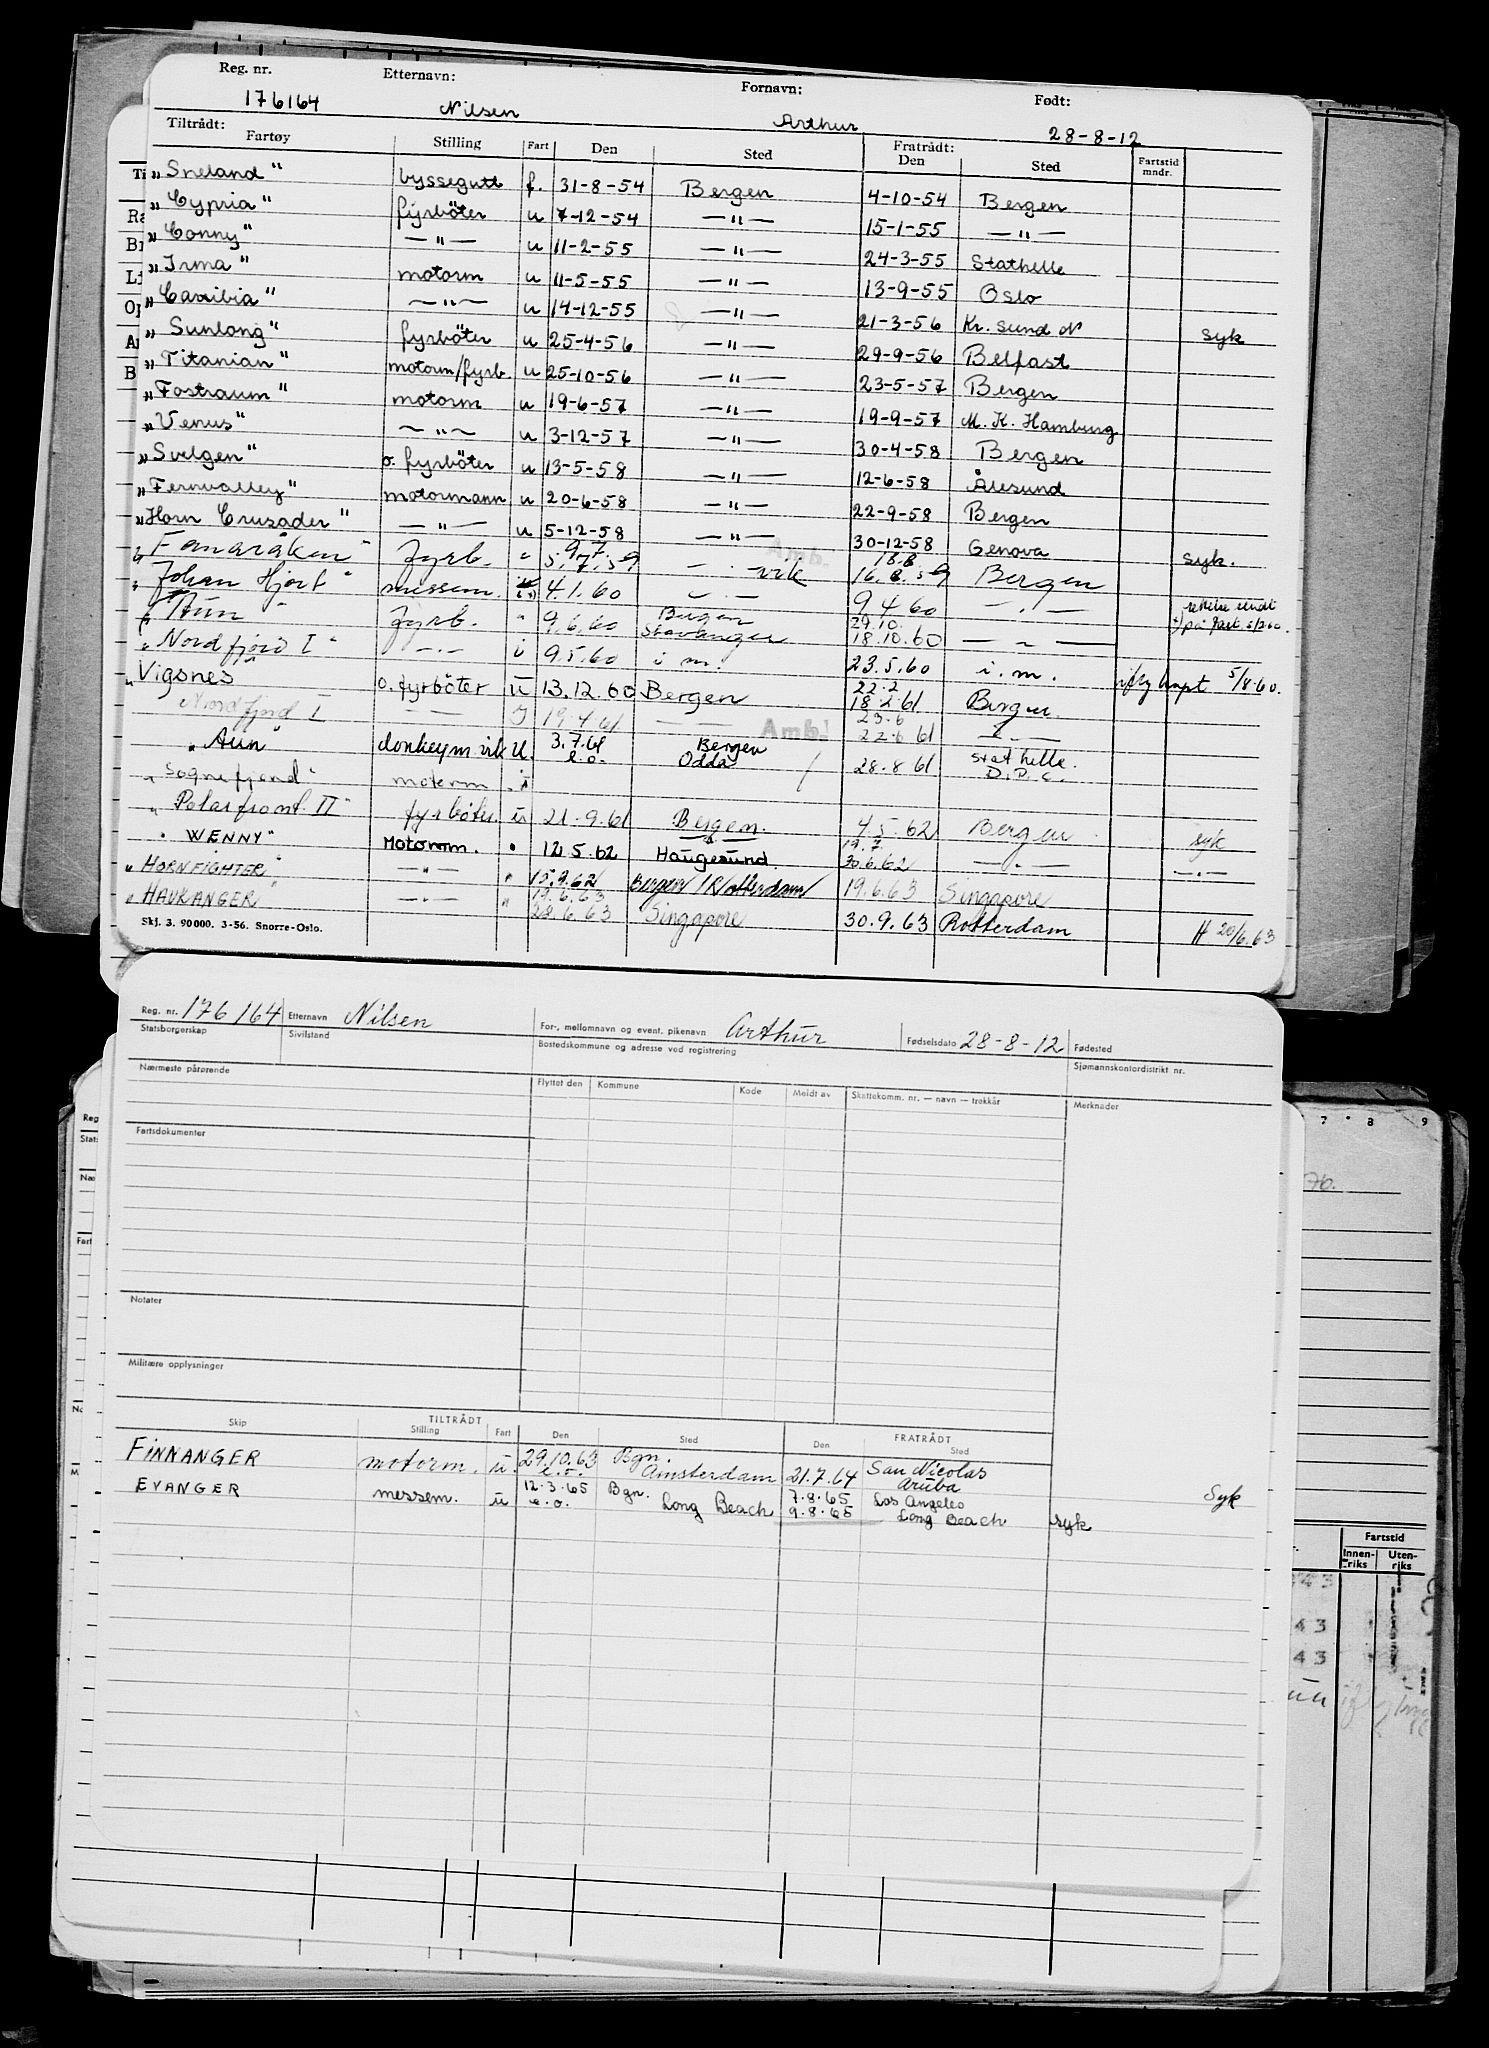 Reg. nr. Etternavn: Fornavn: Født:
176164 Nilsen Arthur 28-8-12
Tiltrådt: Fratrådt:
Fartøy Stilling Fart Den Sted Den Sted Fartstid mndr.
"Sneland" byssegutt f. 31-8-54 Bergen 4-10-54 Bergen
"Cypria" fyrböter u 7-12-54 —"— 15-1-55 —"—
"Conny" —"— u 11-2-55 —"— 24-3-55 Stathelle
"Irma" motorm u 11-5-55 —"— 13-9-55 Oslo
"Caribia" —"— u 14-12-55 —"— 21-3-56 Kr. sund N syk
"Sunlong" fyrböter u 25-4-56 —"— 29-9-56 Belfast
"Titanian" motorm/fyrb u 25-10-56 —"— 23-5-57 Bergen
"Fostraum" motorm u 19-6-57 —"— 19-9-57 M. K. Hamburg
"Venus" —"— u 3-12-57 —"— 30-4-58 Bergen
"Svelgen" o. fyrböter u 13-5-58 —"— 12-6-58 Ålesund
"Fernvalley" motormann u 20-6-58 —"— 22-9-58 Bergen
"Horn Crusader" —"— u 5-12-58 —"— 30-12-58 Genova syk.
"Fanaråken" fyrb. " 9.7 5.7.59 — . — vik 18.8. 16.8.59 Bergen
"Johan Hjort" messem. 4.1.60 — . — 9 4 60 — . —
"Aun" fyrb. " 9.6.60 Bergen Stavanger 29.10. 18.10.60 — " —
"Nordfjord I" —.— i 9.5.60 i m. 23.5.60 i. m. 5/8.60.
"Vigsnes" o. fyrböter ū 13.12.60 Bergen 22.2 18.2.61 Bergen
Nordfjord I 19.4.61 — — Amb. 23.6 22.6 61 — " —
"Aun" donkeym. vik U. 3.7.61 e.o. Bergen Odda 28.8 61 Stathelle. D.P.c.
"Sognefjord" motorm
"Polarfront II" fyrböter ū 21.9.61 Bergen. 4.5.62 Bergen syk
"WENNY" Motorm. " 12.5.62 Haugesund 19.7 30.6.62 — . — — . —
"HORN FIGHTER" —"— " 15.9.62 Bergen /Rotterdam/ 19.6.63 Singapore
"HAUKANGER" —"— " 19.6.63 20.6.63 Singapore 30.9.63 Rotterdam # 20/6.63
Skj. 3. 90000. 3-56. Snorre-Oslo.
Reg. nr. 176164 Etternavn Nilsen For-, mellomnavn og event. pikenavn Arthur Fødselsdato 28-8-12 Fødested
Statsborgerskap Sivilstand Bostedskommune og adresse ved registrering Sjømannskontordistrikt nr.
Nærmeste pårørende Flyttet den Kommune Kode Meldt av Skattekomm. nr. — navn — trekkår Merknader
Fartsdokumenter
Notater
Militære opplysninger
TILTRÅDT FRATRÅDT
Skip Stilling Fart Den Sted Den Sted
FINNANGER motorm. ū. 29.10.63 e.o. Bgn. Amsterdam 21.7.64 San Nicolas Aruba Syk
EVANGER messem. ū 12.3.65 e.o. Bgn. Long Beach 7.8.65 9.8.65 Los Angeles Long Beach syk
7 8 9
76.
Fartstid
Innen-riks Uten-riks
43
43
43